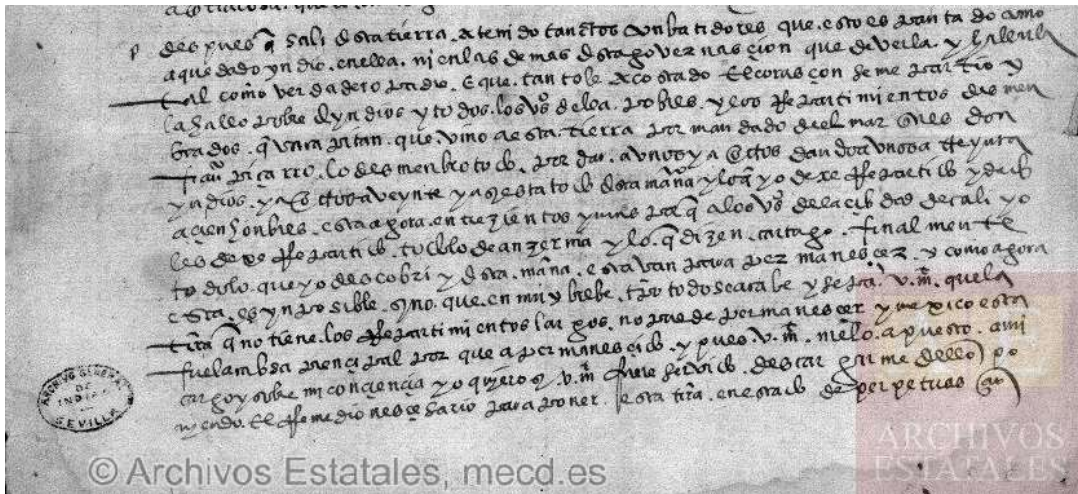 despues q sali desta tierra. a tenido tantos conbatidores que. esto es tanta do como
a quedado yndio. en ella. ni en las demas desta governasçion que de verla. y hallarla
tal como verdadero padre. e que. tanto le a costado el corasçon se me partio y
la hallo pobre dyndios y todos. los vos della. pobres. y los repartimientos desmen
brados. q vino a esta. tierra por mandado del marques don
franco piçarro. lo desmenbro todo. por dar. a unos y a otros dando a unos a treynta
yndios. y a otros a veynte y a mas esta todo desta mana y lo q yo dexe repartido y dado
a çien honbres. esta agora. en trezientos y mas pa q a los vos de la çibdad de cali yo
les dexe repartido. todo lo de anzerma y lo. q dizen. cartago. finalmente
todo lo. que yo descobri y desta. mana. estavan para permanesçer. y como agora
esta. es ynposible. sino. que. en muy brebe. tpo todo se acabe y sepa. v. m. que la
tirra q no tiene. los repartimientos largos. no puede permanesçer y mexico esta
fue la mas prençipal por que a permanesçido. y pues. v. m. me lo. a puesto. a mi
cargo y sobre mi conçiençia yo quiero q v. m. fuere servido. descargarme dello po
niendo. el remedio nesçesario para poner. esta tirra. en estado de perpetuar
ARCHIVO GENERAL
DE
INDIAS
SEVILLA
ARCHIVOS
ESTATALES
© Archivos Estatales, mecd.es